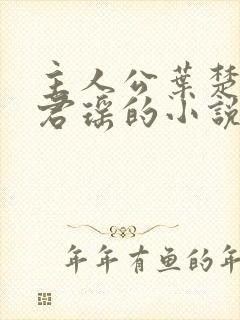 主人公叶楚
君瑶的小说
年年有鱼的年